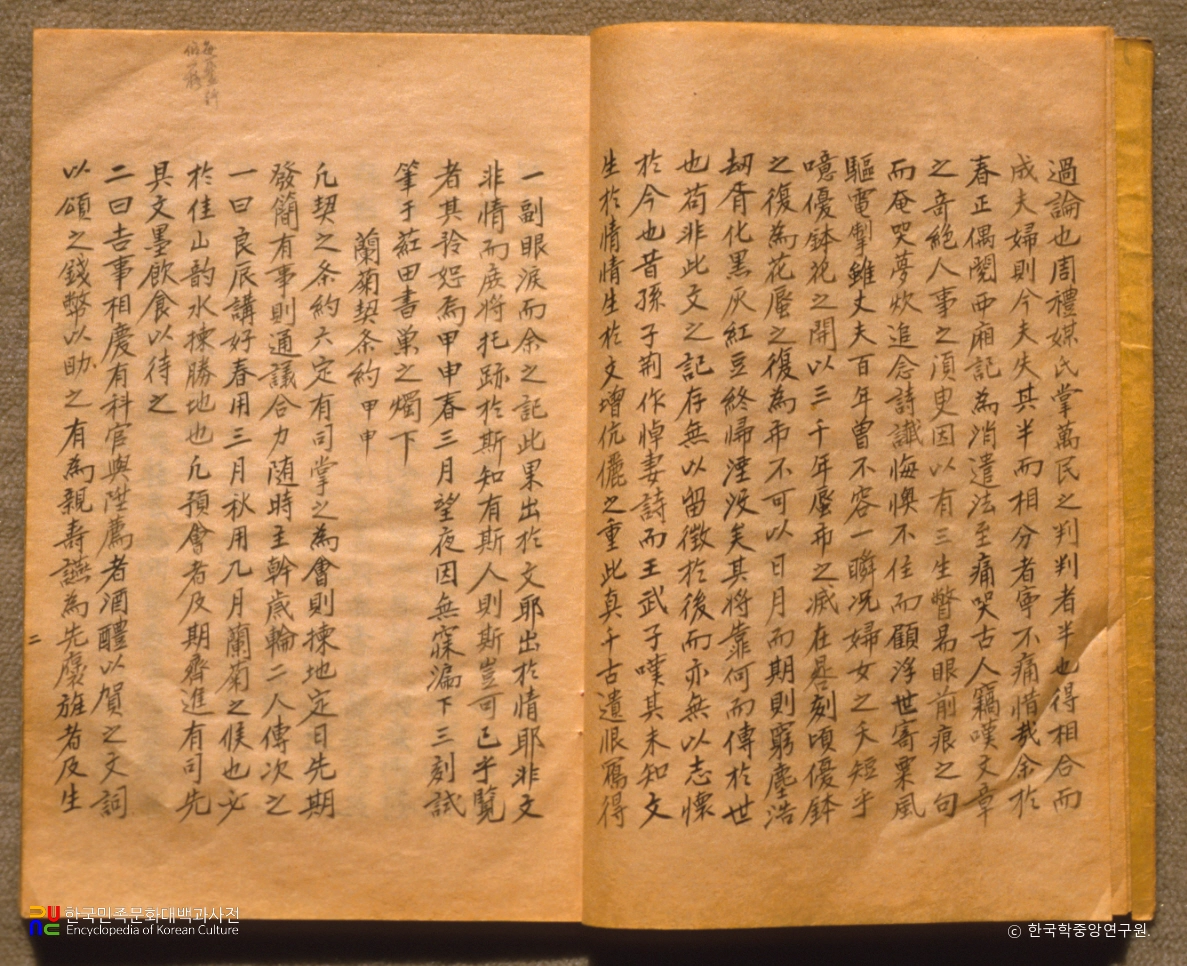 過論也周禮媒氏掌萬民之判判者半也得相合而
成夫婦則今夫失其半而相分者寧不痛惜哉余於
春正偶閱西廂記為消遣法至痛哭古人竊嘆文章
之奇絶人事之須臾因以有三生瞥昜眼前痕之句
而奄哭夢炊追念詩讖悔懊不住而顧浮世寄粟風
驅電掣雖丈夫百年曾不容一瞬况婦女之夭短乎
噫優鉢花之開以三千年蜃市之滅在晷刻頃優鉢
之復為花蜃之復為市不可以日月而期則窮塵浩
刼胥化黑灰紅豆終歸湮沒矣其將靠何而傳於世
也苟非此文之記存無以留徵於後而亦無以志懷
於今也昔孫子荆作悼妻詩而王武子嘆其未知文
生於情情生於文增伉儷之重此真千古遺恨焉得
一副眼淚而余之記此果出於文耶出於情耶非文
非情而庶將托跡於斯知有斯人則斯豈可已乎覽
者其矜恕焉甲申春三月望夜因無寐漏下三刻試
筆于葒田書巢之燭下
蘭菊契条約 甲申
凡契之条約六定有司掌之為會則揀地定日先期
發簡有事則通議合力随時主幹歲輪二人傳次之
一曰良辰講好春用三月秋用九月蘭菊之候也必
於佳山韵水揀勝地也凡預會者及期齊進有司先
具文墨飲食以待之
二曰吉事相慶有科官與陞薦者酒醴以賀之文詞
以頌之錢幣以助之有為親壽讌為先塋旌者及生
二
한국민족문화대백과사전
Encyclopedia of Korean Culture
© 한국학중앙연구원.